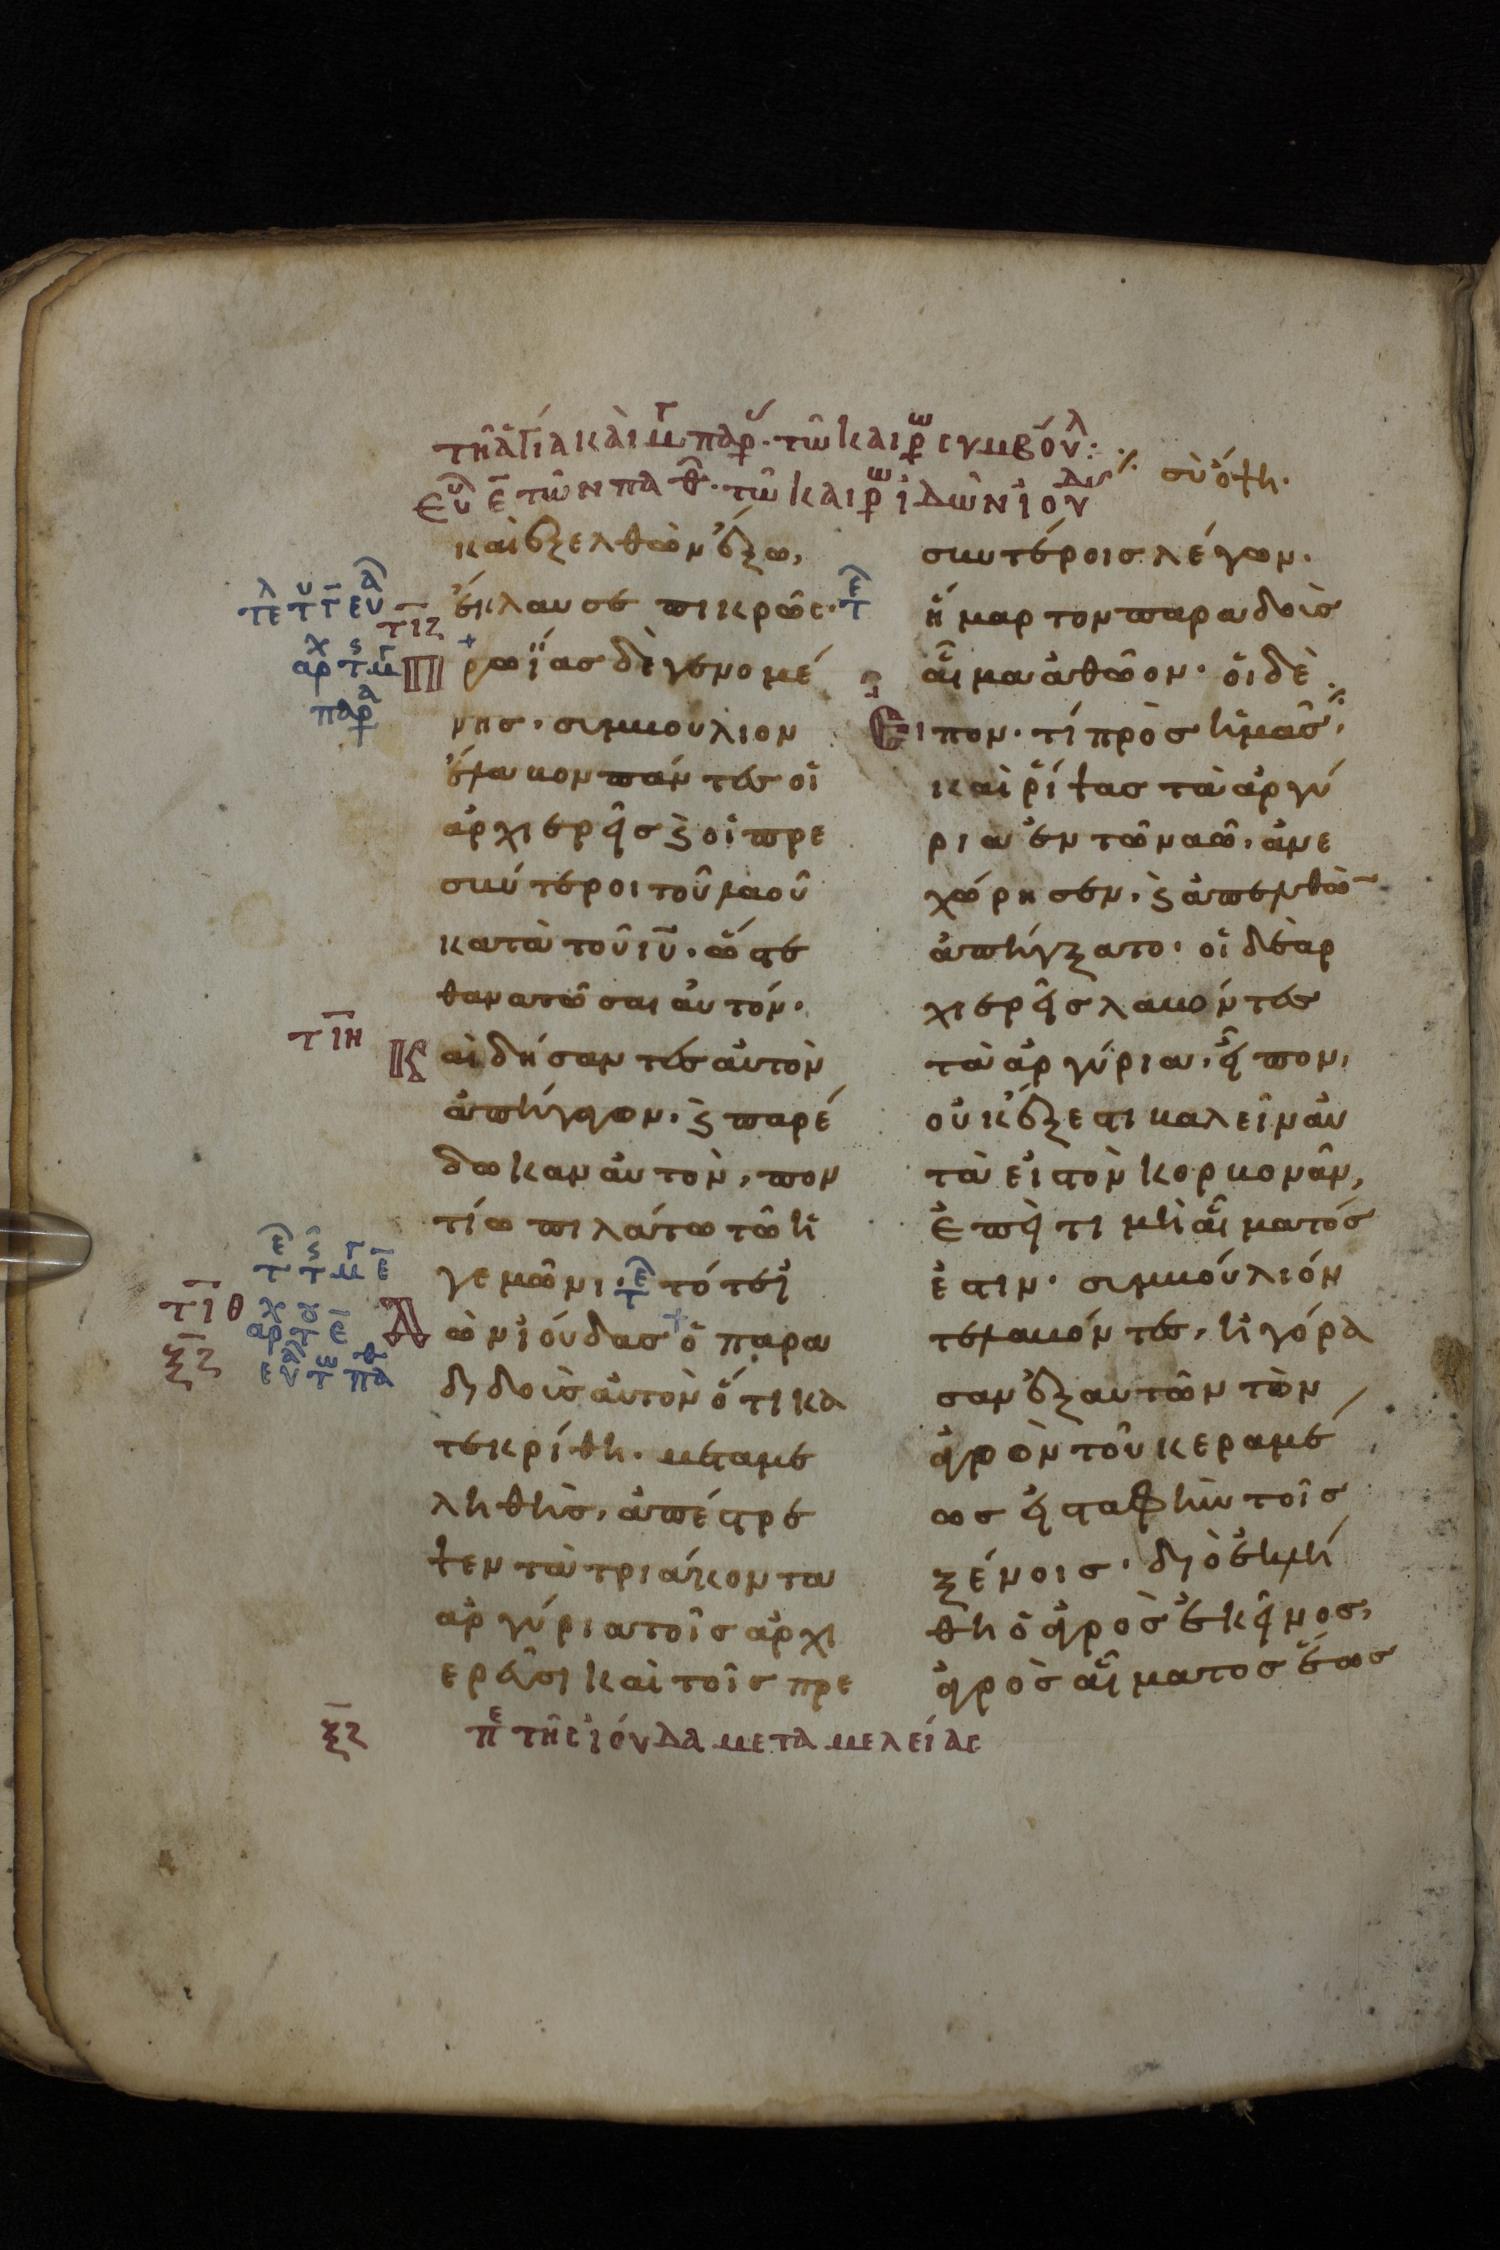 τῆ ἁγία καὶ μ παρ· τῶ καιρ συμβούλ:
σὺ ὄψη·
ευ ε τῶν παθ· τῶ καιρ ἰδὼν ἰού
καὶ ἐξελθὼν ἔξω,
ἔκλαυσε πικρῶς·
τιζ
Πρωΐας δὲ γενομέ
νης· συμβούλιον
ἔλαβον πάντες οἱ
ἀρχιερεῖς ϗ οἱ πρε
σβύτεροι τοῦ λαοῦ
κατὰ τοῦ ιυ· ὥστε
θανατῶσαι αὐτόν·
τιη
Καὶ δήσαντες αὐτὸν
ἀπήγαγον· ϗ παρέ
δωκαν αὐτὸν, πον
τίω πιλάτω τῶ ἡ
γεμῶνι· τότε ἰ
τιθ
ξζ
δὼν ἰούδας ὁ παρα
διδοὺς αὐτὸν ὅτι κα
τεκρίθη· μεταμε
ληθεὶς, ἀπέστρε
ψεν τὰ τριάκοντα
ἀργύρια τοῖς ἀρχι
ερεῦσι καὶ τοῖς πρε
σβυτέροις λέγων·
ἥμαρτον παραδοὺς
αἷμα ἀθῶον· οἱ δὲ
Εἶπον· τί πρὸς ἡμᾶς
καὶ ῥίψας τὰ ἀργύ
ρια ἐν τῶ ναῶ, ἀνε
χώρησεν, ϗ ἀπελθὼ
ἀπήγξατο· οἱ δὲ ἀρ
χιερεῖς λαβόντες
τὰ ἀργύρια, εἶπον,
οὐκ ἔξεστι βαλεῖν αὐ
τὰ εἰς τὸν κορβονᾶν,
ἐπεὶ τιμὴ αἵματός
ἐστιν· συμβούλιόν
τε λαβόντες, ἠγόρα
σαν ἐξ αυτῶν τὸν
ἀγρὸν τοῦ κεραμέ
ως εἰς ταφὴν τοῖς
ξένοις· διὸ ἐκλή
θη ὁ ἀγρὸς ἐκεῖνος,
ἀγρὸς αἵματος ἕως
ξζ πε τῆς ἰούδα μεταμελείας